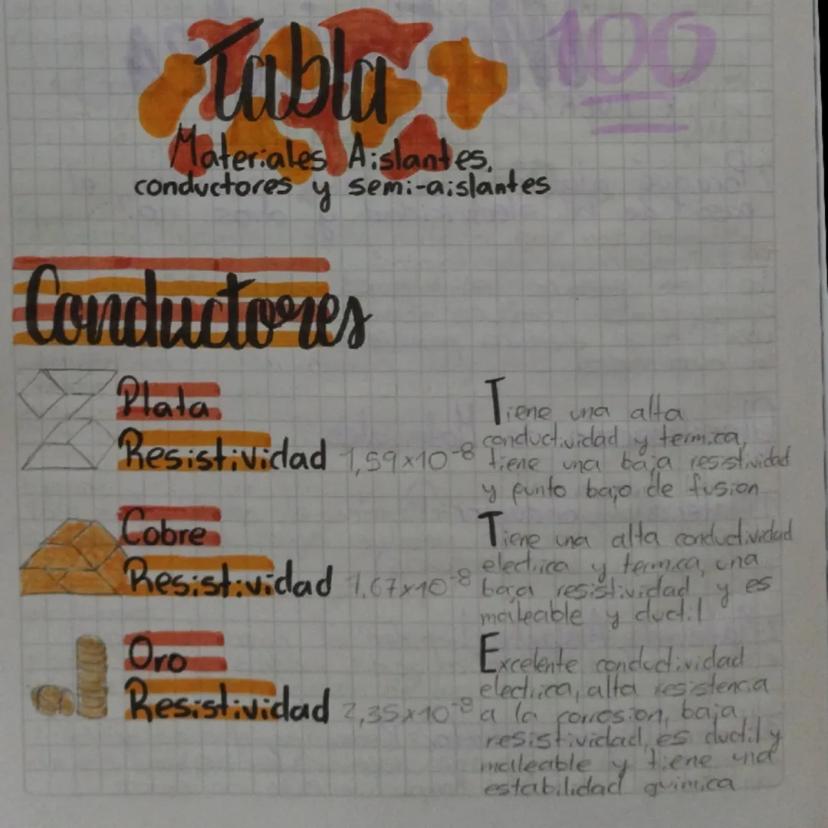 Tabla
100
Materiales Aislantes,
conductores y semi-aislantes
Conductores
Plata
Resistividad 1,59x10⁻⁸
Tiene una alta
conductividad y termica,
tiene una baja resistividad
y punto bajo de fusion
Cobre
Resistividad 1,67x10⁻⁸
Tiene una alta conductividad
electrica y termica, una
baja resistividad y es
maleable y ductil
Oro
Resistividad 2,35x10⁻⁸
Excelente conductividad
electrica, alta resistencia
a la corrosion, baja
resistividad, es ductil y
maleable y tiene una
estabilidad quimica